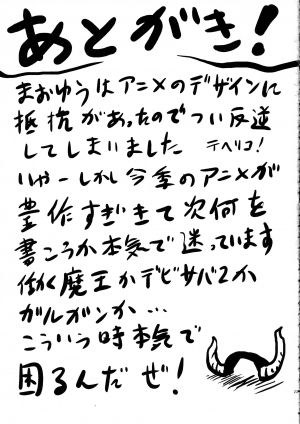 あとがき!
まおゆうはアニメのデザインに
抵抗があったのでつい反逆
してしまいました テヘリコ!
いやーしかし今季のアニメが
豊作すぎきて次何を
書こうか本気で迷っています
働く魔王かデビサバ2か
ガルガンか…
こういう時本気で
困るんだぜ!